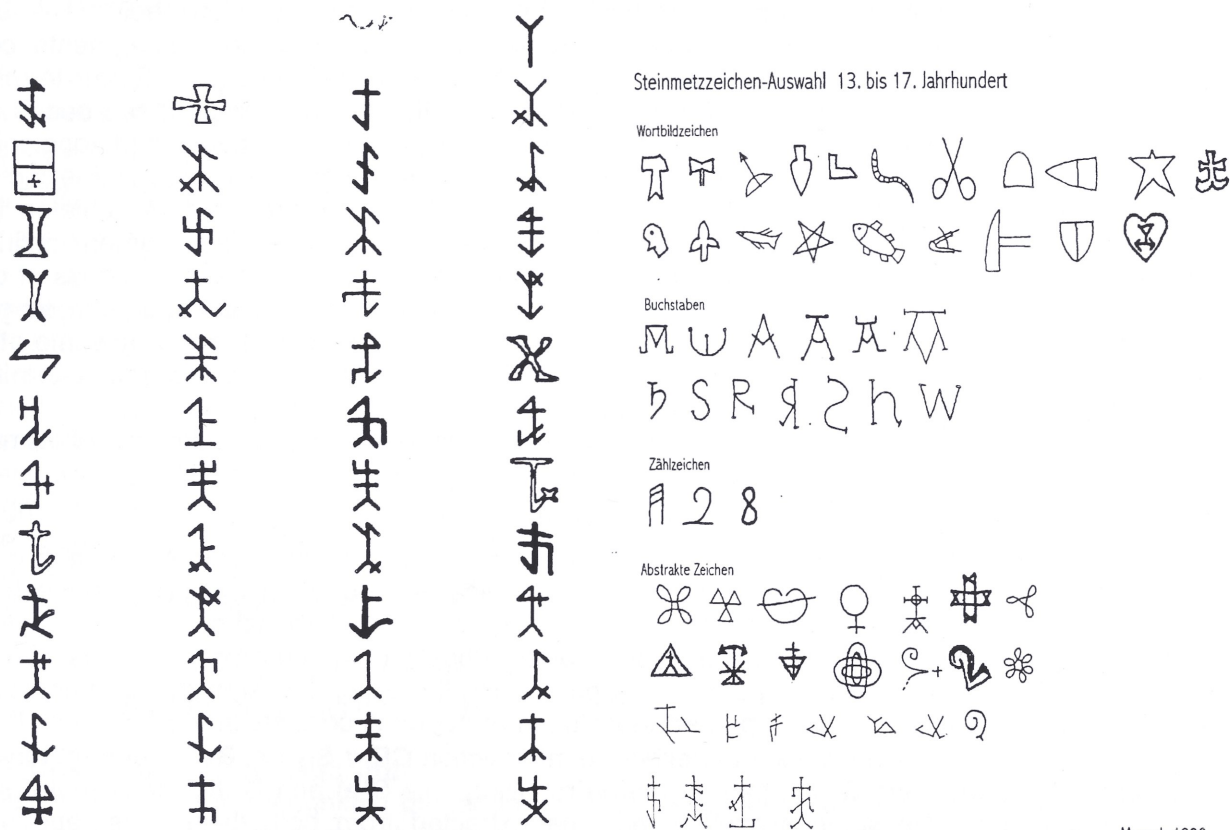 Steinmetzzeichen-Auswahl 13. bis 17. Jahrhundert
Wortbildzeichen
Buchstaben
M W A A A
S R Я S h W
Zählzeichen
2 8
Abstrakte Zeichen